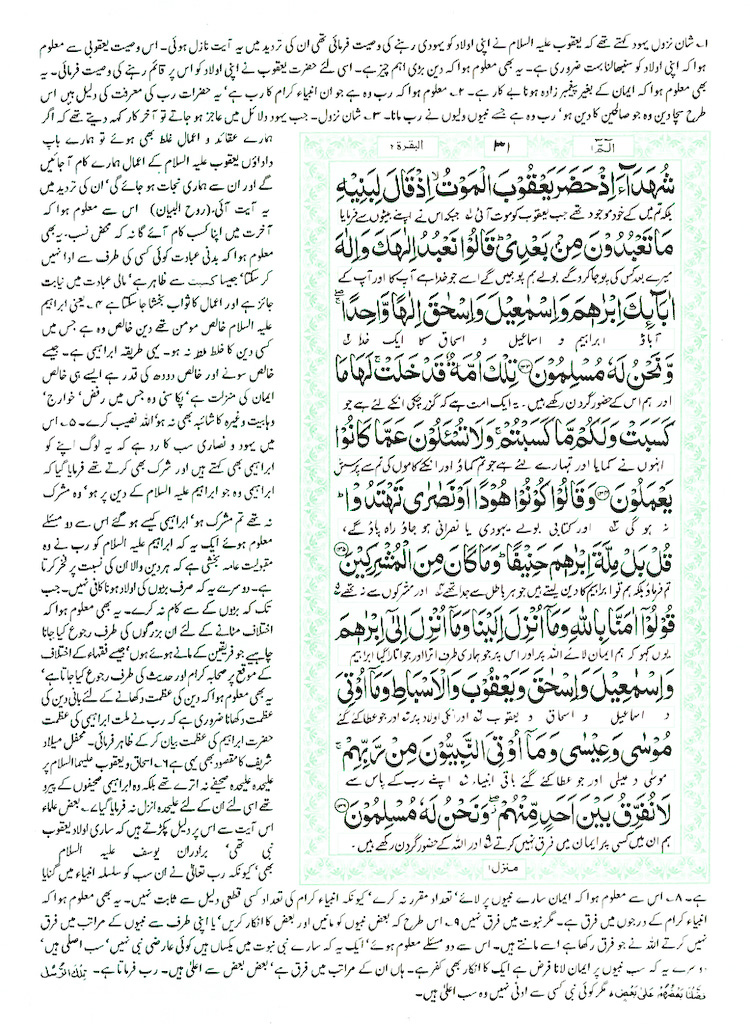 ۱۔ شان نزول یہود کہتے تھے کہ یعقوب علیہ السلام نے اپنی اولاد کو یہودی رہنے کی وصیت فرمائی تھی ان کی تردید میں یہ آیت نازل ہوئی۔ اس وصیت یعقوبی سے معلوم
ہوا کہ اپنی اولاد کو سنبھالنا بہت ضروری ہے۔ یہ بھی معلوم ہوا کہ دین بڑی اہم چیز ہے۔ اسی لئے حضرت یعقوب نے اپنی اولاد کو اس پر قائم رہنے کی وصیت فرمائی۔ یہ
بھی معلوم ہوا کہ ایمان کے بغیر پیغمبر زادہ ہونا بے کار ہے۔ ۲۔ معلوم ہوا کہ رب وہ ہے جو ان انبیاء کرام کا رب ہے' یہ حضرات رب کی معرفت کی دلیل ہیں اس
طرح سچا دین وہ جو صالحین کا دین ہو' رب وہ ہے جسے نبیوں ولیوں نے رب مانا۔ ۳۔ شان نزول۔ جب یہود دلائل میں عاجز ہو جاتے تو آخر کار کہہ دیتے تھے کہ اگر
ہمارے عقائد و اعمال غلط بھی ہوئے تو ہمارے باپ
داداؤں یعقوب علیہ السلام کے اعمال ہمارے کام آ جائیں
گے اور ان سے ہماری نجات ہو جائے گی' ان کی تردید میں
یہ آیت آئی۔ (روح البیان) اس سے معلوم ہوا کہ
آخرت میں اپنا کسب کام آئے گا نہ کہ محض نسب' یہ بھی
معلوم ہوا کہ بدنی عبادت کوئی کسی کی طرف سے ادا نہیں
کر سکتا' جیسا کسبت سے ظاہر ہے' مالی عبادت میں نیابت
جائز ہے اور اعمال کا ثواب بخشا جا سکتا ہے ۴۔ یعنی ابراہیم
علیہ السلام خالص مومن تھے دین خالص وہ ہے جس میں
کسی دین کا خلط ملط نہ ہو۔ یہی طریقہ ابراہیمی ہے۔ جیسے
خالص سونے اور خالص دودھ کی قدر ہے ایسے ہی خالص
ایمان کی منزلت ہے' پکا سنی وہ جس میں رفض' خوارج'
وہابیت وغیرہ کا شائبہ بھی نہ ہو' اللہ نصیب کرے۔ ۵۔ اس
میں یہود و نصاری سب کا رد ہے کہ یہ لوگ اپنے کو
ابراہیمی بھی کہتے ہیں اور شرک بھی کرتے تھے فرمایا گیا کہ
ابراہیمی وہ جو ابراہیم علیہ السلام کے دین پر ہو' وہ مشرک
نہ تھے تم مشرک ہو' ابراہیمی کیسے ہو گئے اس سے دو مسئلے
معلوم ہوئے ایک یہ کہ ابراہیم علیہ السلام کو رب نے وہ
مقبولیت عامہ بخشی ہے کہ ہر دین والا ان کی نسبت پر فخر کرتا
ہے۔ دوسرے یہ کہ صرف بڑوں کی اولاد ہونا کافی نہیں۔ جب
تک کہ بڑوں کے سے کام نہ کرے۔ یہ بھی معلوم ہوا کہ
اختلاف مٹانے کے لئے ان بزرگوں کی طرف رجوع کیا جانا
چاہیے جو فریقین کے مانے ہوئے ہوں' جیسے فقہاء کے اختلاف
کے موقع پر صحابہ کرام اور حدیث کی طرف رجوع کیا جاتا ہے'
یہ بھی معلوم ہوا کہ دین کی عظمت دکھانے کے لئے بانی دین کی
عظمت دکھانا ضروری ہے کہ رب نے ملت ابراہیمی کی عظمت
حضرت ابراہیم کی عظمت بیان کر کے ظاہر فرمائی۔ محفل میلاد
شریف کا مقصود بھی یہی ہے ۶۔ اسحاق و یعقوب علیہما السلام پر
علیحدہ علیحدہ صحیفے نہ اترے تھے بلکہ وہ ابراہیمی صحیفوں کے پیرو
تھے اسی لئے ان کے لئے علیحدہ انزل نہ فرمایا گیا ۷۔ بعض علماء
اس آیت سے اس پر دلیل پکڑتے ہیں کہ ساری اولاد یعقوب
نبی تھی' برادران یوسف علیہ السلام
بھی' کیونکہ رب تعالیٰ نے ان سب کو سلسلہ انبیاء میں گنایا
البقرۃ ۲
۳۱
الٓمّٓ ۱
شُهَدَآءَ اِذْ حَضَرَ يَعْقُوْبَ الْمَوْتُ ۙ اِذْ قَالَ لِبَنِيْهِ
بلکہ تم میں کے خود موجود تھے جب یعقوب کو موت آئی ۱ جبکہ اس نے اپنے بیٹوں سے فرمایا
مَا تَعْبُدُوْنَ مِنْۢ بَعْدِيْ ؕ قَالُوْا نَعْبُدُ اِلٰهَكَ وَاِلٰهَ
میرے بعد کس کی پوجا کرو گے بولے ہم پوجیں گے اسے جو خدا ہے آپ کا اور آپ کے
اٰبَآىِٕكَ اِبْرٰهٖمَ وَاِسْمٰعِيْلَ وَاِسْحٰقَ اِلٰهًا وَّاحِدًا ۖۚ
آباؤ ابراہیم و اسماعیل و اسحاق کا ایک خدا ۲
وَّنَحْنُ لَهٗ مُسْلِمُوْنَ ﴿۱۳۳﴾ تِلْكَ اُمَّةٌ قَدْ خَلَتْ ۚ لَهَا مَا
اور ہم اس کے حضور گردن رکھے ہیں۔ یہ ایک امت ہے کہ گزر چکی انکے لئے ہے جو
كَسَبَتْ وَلَكُمْ مَّا كَسَبْتُمْ ۚ وَلَا تُسْـَٔلُوْنَ عَمَّا كَانُوْا
انہوں نے کمایا اور تمہارے لئے ہے جو تم کماؤ اور انکے کاموں کی تم سے پرسش
يَعْمَلُوْنَ ﴿۱۳۴﴾ وَقَالُوْا كُوْنُوْا هُوْدًا اَوْ نَصٰرٰى تَهْتَدُوْا ؕ
نہ ہو گی ۳ اور کتابی بولے یہودی یا نصرانی ہو جاؤ راہ پاؤ گے،
قُلْ بَلْ مِلَّةَ اِبْرٰهٖمَ حَنِيْفًا ؕ وَمَا كَانَ مِنَ الْمُشْرِكِيْنَ ﴿۱۳۵﴾
تم فرماؤ بلکہ ہم تو ابراہیم کا دین لیتے ہیں جو ہر باطل سے جدا تھے ۴ اور مشرکوں سے نہ تھے ۵
قُوْلُوْٓا اٰمَنَّا بِاللّٰهِ وَمَآ اُنْزِلَ اِلَيْنَا وَمَآ اُنْزِلَ اِلٰٓى اِبْرٰهٖمَ
یوں کہو کہ ہم ایمان لائے اللہ پر اور اس پر جو ہماری طرف اترا اور جو اتارا گیا ابراہیم
وَاِسْمٰعِيْلَ وَاِسْحٰقَ وَيَعْقُوْبَ وَالْاَسْبَاطِ وَمَآ اُوْتِيَ
و اسماعیل و اسحاق و یعقوب ۶ اور انکی اولاد پر ۷ اور جو عطا کئے گئے
مُوْسٰى وَعِيْسٰى وَمَآ اُوْتِيَ النَّبِيُّوْنَ مِنْ رَّبِّهِمْ ۚ
موسیٰ و عیسیٰ اور جو عطا کئے گئے باقی انبیاء ۸ اپنے رب کے پاس سے
لَا نُفَرِّقُ بَيْنَ اَحَدٍ مِّنْهُمْ ۖؗ وَنَحْنُ لَهٗ مُسْلِمُوْنَ ﴿۱۳۶﴾
ہم ان میں کسی پر ایمان میں فرق نہیں کرتے ۹ اور اللہ کے حضور گردن رکھے ہیں۔
منزل ۱
ہے۔ ۸۔ اس سے معلوم ہوا کہ ایمان سارے نبیوں پر لائے' تعداد مقرر نہ کرے' کیونکہ انبیاء کرام کی تعداد کسی قطعی دلیل سے ثابت نہیں۔ یہ بھی معلوم ہوا کہ
انبیاء کرام کے درجوں میں فرق ہے۔ مگر نبوت میں فرق نہیں ۹۔ اس طرح کہ بعض نبیوں کو مانیں اور بعض کا انکار کریں' یا اپنی طرف سے نبیوں کے مراتب میں فرق
نہیں کرتے اللہ نے جو فرق رکھا ہے اسے مانتے ہیں۔ اس سے دو مسئلے معلوم ہوئے' ایک یہ کہ سارے نبی نبوت میں یکساں ہیں کوئی عارضی نبی نہیں' سب اصلی ہیں'
دوسرے یہ کہ سب نبیوں پر ایمان لانا فرض ہے ایک کا انکار بھی کفر ہے۔ ہاں ان کے مراتب میں فرق ہے' بعض بعض سے اعلیٰ ہیں۔ رب فرماتا ہے۔ تِلْكَ الرُّسُلُ
فَضَّلْنَا بَعْضَهُمْ عَلٰى بَعْضٍ ۔ مگر کوئی نبی کسی سے ادنیٰ نہیں وہ سب اعلیٰ ہیں۔